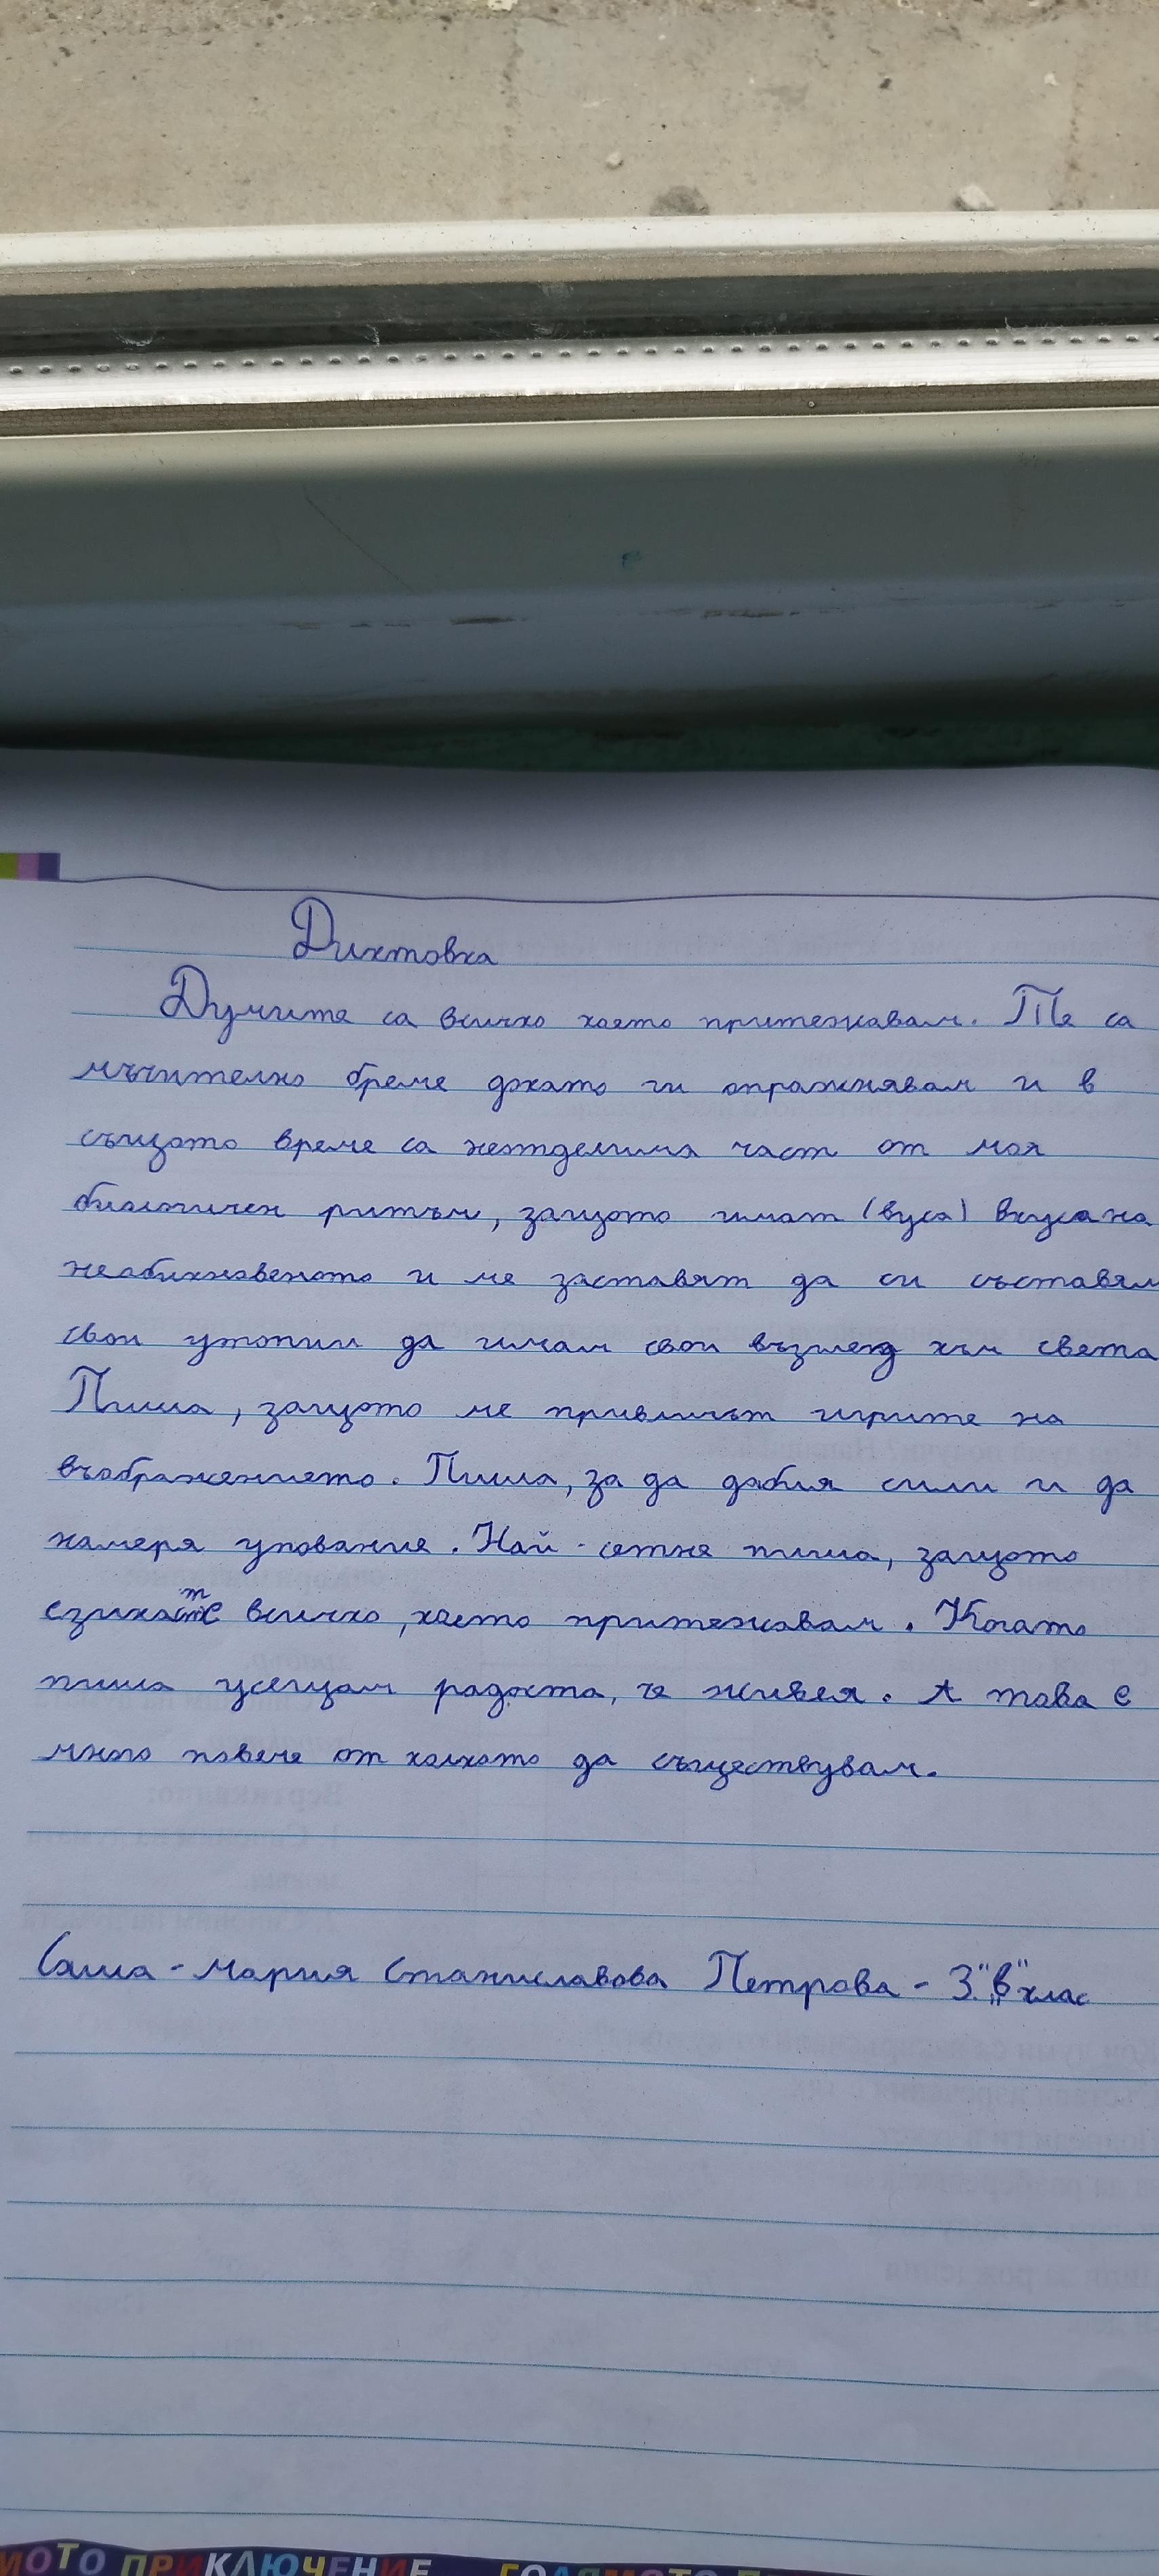 Диктовка
Думите са всичко което притежавам. Те са
мъчително бреме докато ги опражнявам и в
същото време са неотделима част от моя
биологичен ритъм, защото имат (вуса) вкуса на
необикновеното и ме заставят да си съставям
свои утопии да имам свои възглед към света
Пиша, защото ме привличат игрите на
въображението. Пиша, за да добия сили и да
намеря упование. Най-сетне пиша, защото
езикът е всичко, което притежавам. Когато
пиша усещам радоста, че живея. А това е
много повече от колкото да съществувам.
Саша-Мария Станиславова Петрова - 3. "в" клас
МОТО ПРИКЛЮЧЕНИЕ ГОЛЯМОТО